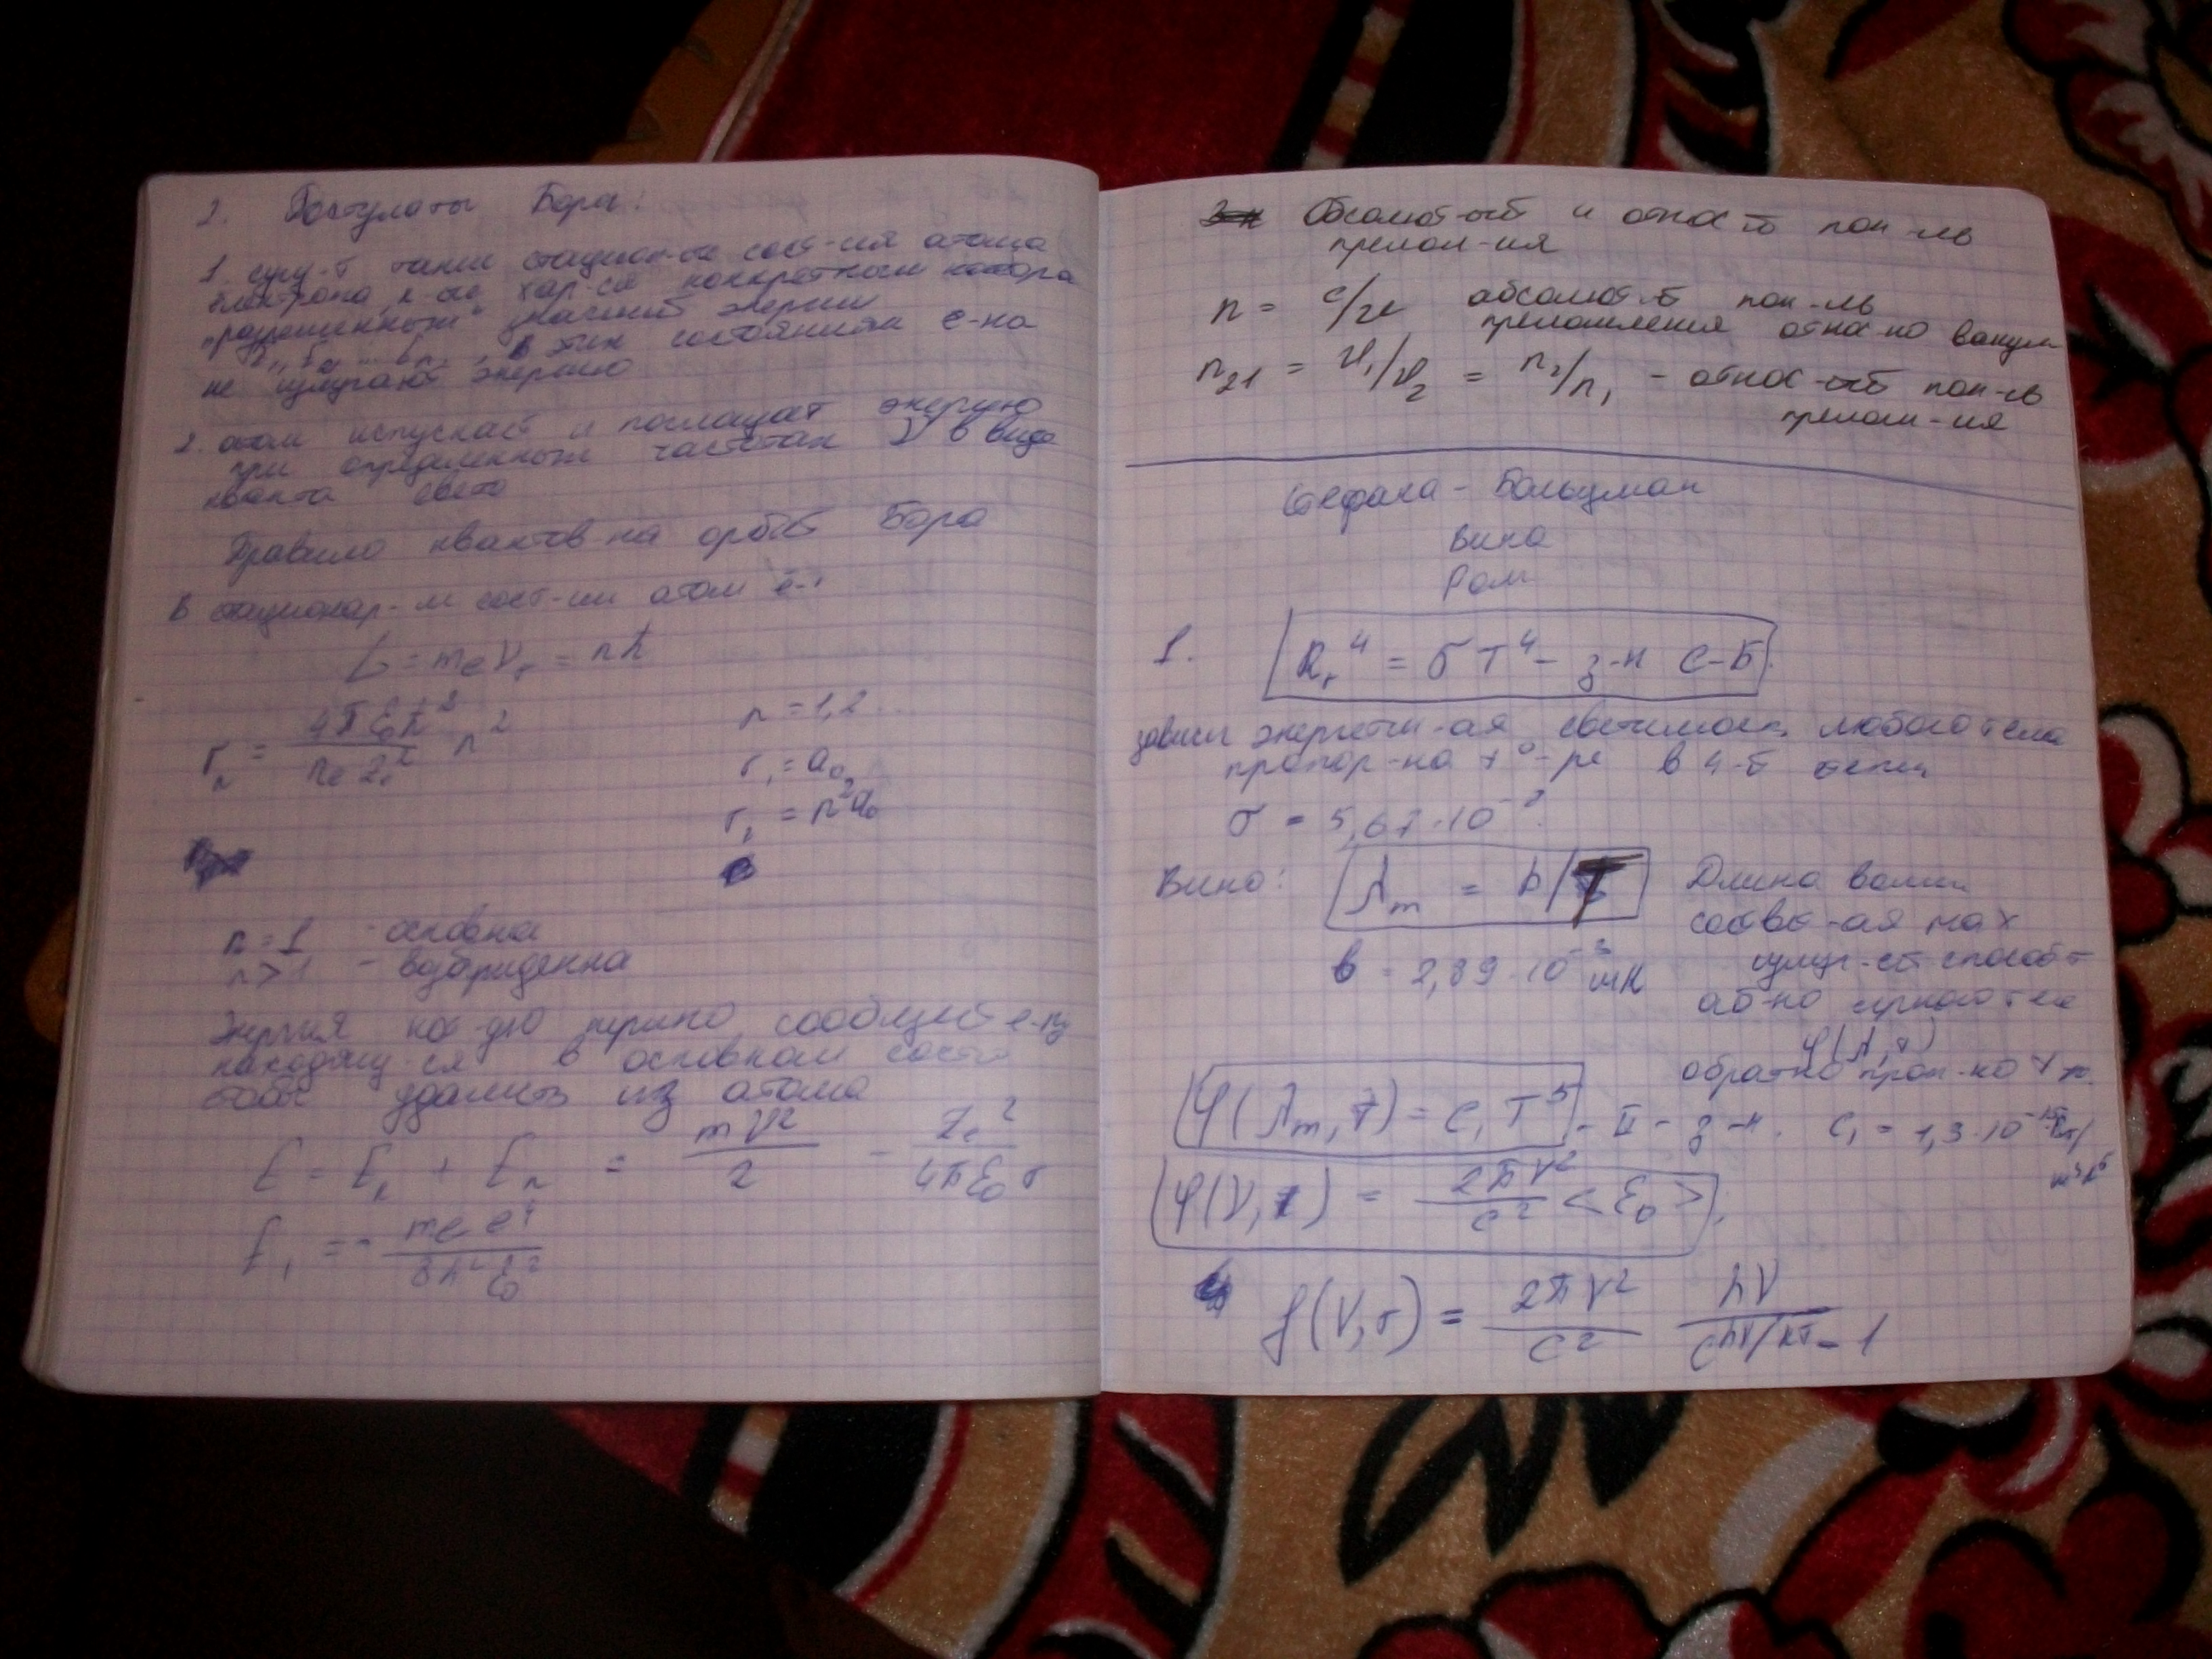 2. Постулаты Бора:
1. сущ-т такие стацион-ые сост-ия атома
электрона, к-ые хар-ся конкретным набора
"разрешенных" значений энергии
E₁, E₂ ... Eₙ, в этих состояниях е-на
не излучают энергию
2. атом испускает и поглащает энергию
при определенных частотах ν в виде
кванта света
Правило квантов-на орбит Бора
В стационар-м сост-ии атом
L = meVr = nħ
rₙ = 4πε₀ħ² / me Ze² n²
n = 1,2..
r₁ = a₀
r₁ = n²a₀
n = 1 - основна
n > 1 - возбужденна
Энергия сообщ
находящ-ся в основном сост
тобы удалить из атома
E = Eк + Eп = mV²/2 - Ze²/4πε₀r
E₁ = - me e⁴ / 8h²ε₀²
Абсолют-ый и относ-ый пок-ль
прелом-ия
n = c/v абсолют-ый пок-ль
преломления относ-но вакуум
n₂₁ = v₁/v₂ = n₂/n₁ - относ-ый пок-ль
прелом-ия
Стефана - Больцман
Вина
Рэл
1. Rr⁴ = σT⁴ - з-н С-Б
энергети-ая светимость любого тела
пропор-на to-ре в 4-й степ
σ = 5,67·10⁻⁸
Вина: λm = b/T
b = 2,89·10⁻³ мК
Длина волны
соотв-ая max
излуч-ей способ
аб-но черного тела
φ(λ,T)
обратно проп-но
φ(λm,T) = C₁T⁵ - II - з-н. C₁ = 1,3·10⁻⁵ Вт/
м³К⁵
φ(ν,T) = 2πν²/c² <ε₀>;
f(ν,T) = 2πν²/c² hν/e^hν/kT - 1